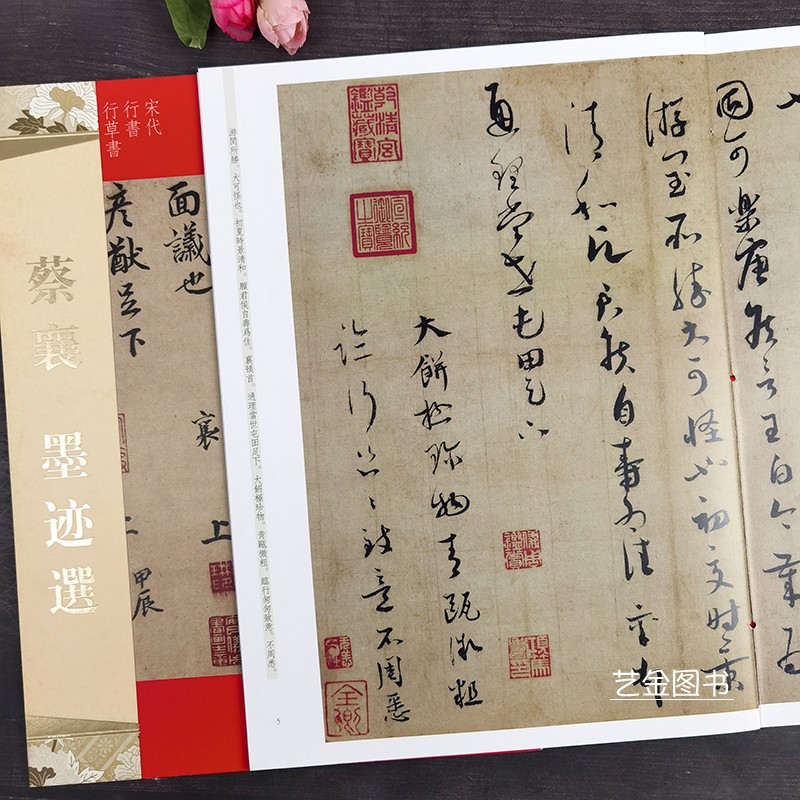 宋代
行書
行草書
蔡襄 墨迹選
面議也
彦猷足下
襄
上
甲辰
游閏所勝。大可怪也。初夏時景清和。願君侯自壽爲佳。襄頓首。通理當世屯田足下。大餅極珍物。青甌微粗。臨行匆匆致意。不周悉。
5
王白今歲爲
固可樂唐侯言
游閏所勝大可怪也初夏時景
清和願君侯自壽爲佳襄頓
通理當世屯田足下
大餅極珍物青甌微粗
臨行匆匆致意不周悉
乾清宮鑑藏寶
宣統御覽之寶
全卿
艺金图书